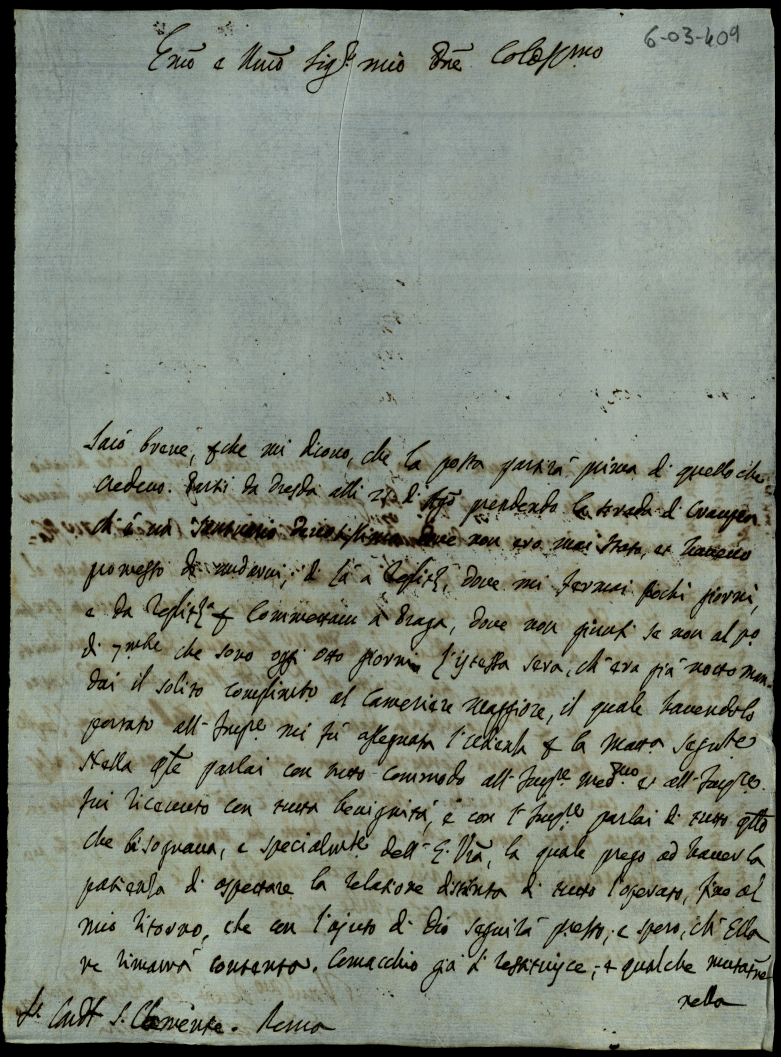 6-03-409
Emõ e Rmõ Sig.re mio Pñe Colẽssmo
Sarò breve, perche mi dicono, che la posta partirà prima di quello che
credevo. Partì da Dresda alli 27 di Agõ prendendo la strada di
ch'è un Santuario devotissimo dove non ero mai stato, et havevo
promesso di andarvi; di là a Teplitz, dove mi fermai pochi giorni,
e da Teplitz a Praga, dove non giunsi se non al pº
di 7mbre che sono oggi otto giorni. L'istessa sera, ch'era già notte man-
dai il solito complimto al Cameriere Maggiore, il quale havendolo
portato all'Impre mi fù assegnata l'udienza per la matta segnte
Nella qle parlai con tutto commodo all'Impre medmo et all'Impce.
Fui ricevuto con tutta benignità, e con l'Impre parlai di tutto qllo
che bisognava, e specialmte dell'E. Vrã, la quale prego ad haver la
patienza di aspettare la relatione distinta di tutto l'operato, fino al
mio ritorno, che con l'ajuto di Dio seguirà presto, e spero, ch'Ella
ne rimarrà contenta. Comacchio già si restituisce, e qualche
nella
Sr. Cardl S. Clemente. Roma